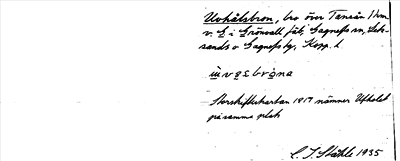 Uvhålsbron, bro över Tansån 1 km
v. E i Grönvall fäb, Gagnefs sn, Leksands o Gagnefs tg, Kopp. l.
ùvəsbrò̱na
Storskifteskartan 1817 nämner Ufhålet
på samma plats
C. I. Ståhle 1935